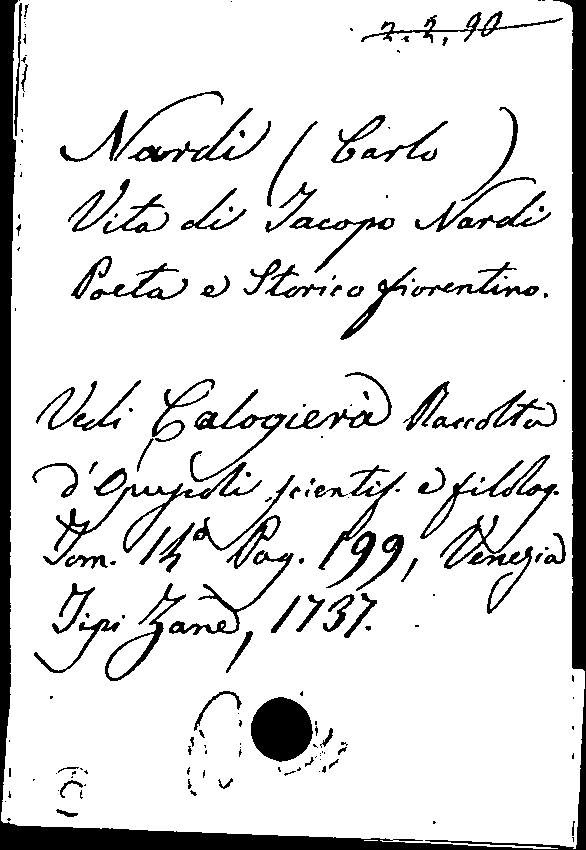 2.2.90
Nardi (Carlo)
Vita di Jacopo Nardi
Poeta e Storico fiorentino.
Vedi Calogierà Raccolta
d'Opuscoli scientif. e filolog.
Tom. 14° Pag. 199, Venezia
Tipi Zane, 1737.